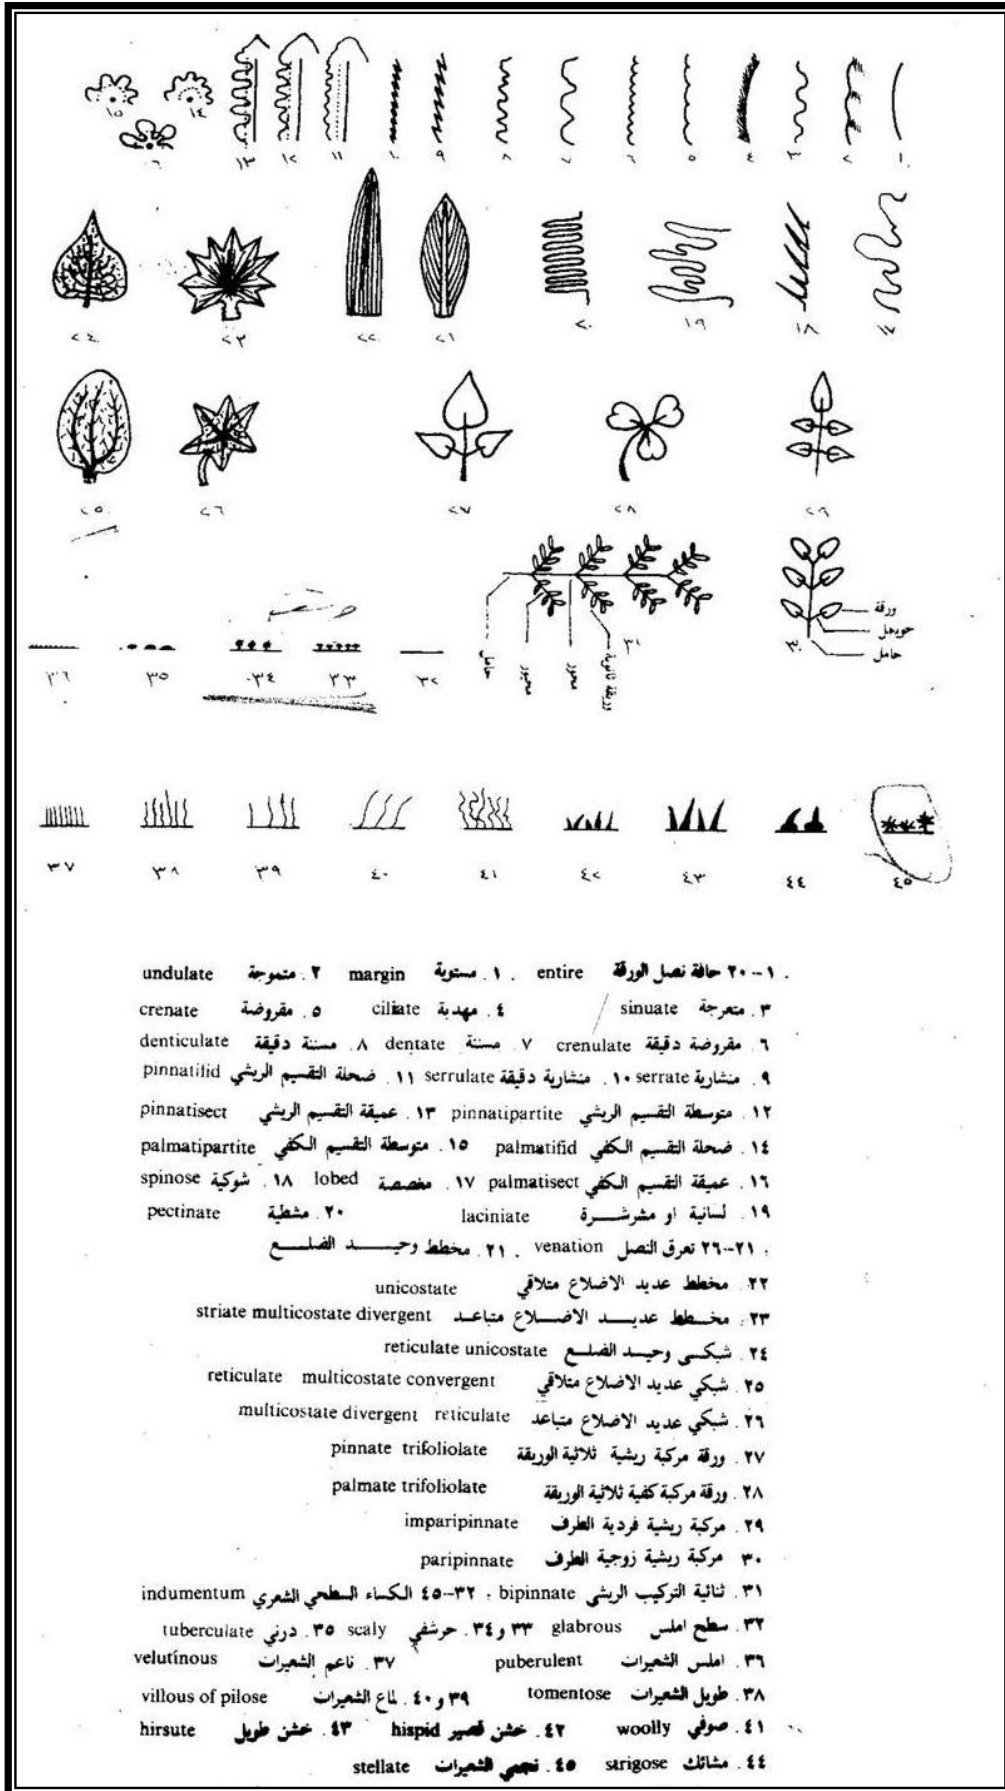 ١٥ ١٤ ١٣ ١٢ ١١ ١٠ ٩ ٨ ٧ ٦ ٥ ٤ ٣ ٢ ١
١٦
٢٤ ٢٣ ٢٢ ٢١ ٢٠ ١٩ ١٨ ١٧
٢٥ ٢٦ ٢٧ ٢٨ ٢٩
ورقة
حويمل
حامل
٣٠
حامل
محيور
محور
وريقة ثانوية
٣١
٣٦ ٣٥ ٣٤ ٣٣ ٣٢
٣٧ ٣٨ ٣٩ ٤٠ ٤١ ٤٢ ٤٣ ٤٤ ٤٥
١--٢٠ حافة نصل الورقة entire . ١. مستوية margin ٢. متموجة undulate
٣. متعرجة sinuate ٤. مهدبة ciliate ٥. مقروضة crenate
٦. مقروضة دقيقة crenulate ٧. مسننة dentate ٨. مسننة دقيقة denticulate
٩. منشارية serrate ١٠. منشارية دقيقة serrulate ١١. ضحلة التقسيم الريشي pinnatilid
١٢. متوسطة التقسيم الريشي pinnatipartite ١٣. عميقة التقسيم الريشي pinnatisect
١٤. ضحلة التقسيم الكفي palmatifid ١٥. متوسطة التقسيم الكفي palmatipartite
١٦. عميقة التقسيم الكفي palmatisect ١٧. مفصصة lobed ١٨. شوكية spinose
١٩. لسانية او مشرشرة laciniate ٢٠. مشطية pectinate
٢١--٢٦ تعرق النصل venation . ٢١. مخطط وحيد الضلع
٢٢. مخطط عديد الاضلاع متلاقي unicostate
٢٣. مخطط عديد الاضلاع متباعد striate multicostate divergent
٢٤. شبكي وحيد الضلع reticulate unicostate
٢٥. شبكي عديد الاضلاع متلاقي reticulate multicostate convergent
٢٦. شبكي عديد الاضلاع متباعد multicostate divergent reticulate
٢٧. ورقة مركبة ريشية ثلاثية الوريقة pinnate trifoliolate
٢٨. ورقة مركبة كفية ثلاثية الوريقة palmate trifoliolate
٢٩. مركبة ريشية فردية الطرف imparipinnate
٣٠ مركبة ريشية زوجية الطرف paripinnate
٣١. ثنائية التركيب الريشي bipinnate . ٣٢--٤٥ الكساء السطحي الشعري indumentum
٣٢. سطح املس glabrous ٣٣ و٣٤. حرشفي scaly ٣٥. درني tuberculate
٣٦. املس الشعيرات puberulent ٣٧. ناعم الشعيرات velutinous
٣٨. طويل الشعيرات tomentose ٣٩ و٤٠. لماع الشعيرات villous of pilose
٤١. صوفي woolly ٤٢. خشن قصير hispid ٤٣. خشن طويل hirsute
٤٤. مشائك strigose ٤٥. نجمي الشعيرات stellate